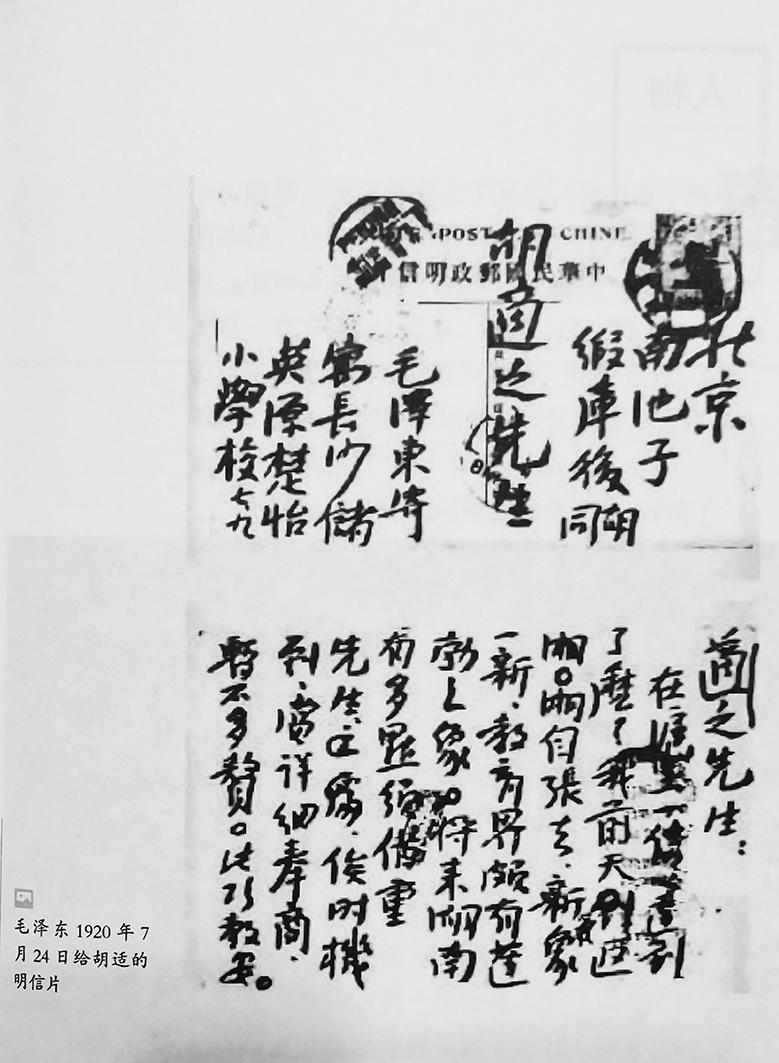 POST CHINE
中華民國郵政明信
北京
南池子
緞庫後胡同
胡適之先生
毛澤東寄
寓長沙儲
英源楚怡
小學校 七九
適之先生：
在滬上一信達到
了麼？我前天返
湘。湘自張去、新氣象
一新、教育界頗有蓬
勃之象。將来湖南
有多點須借重
先生、之處、俟时機
到、當詳細奉商、
暫不多贅。此頌教安。
毛泽东1920年7
月24日给胡适的
明信片